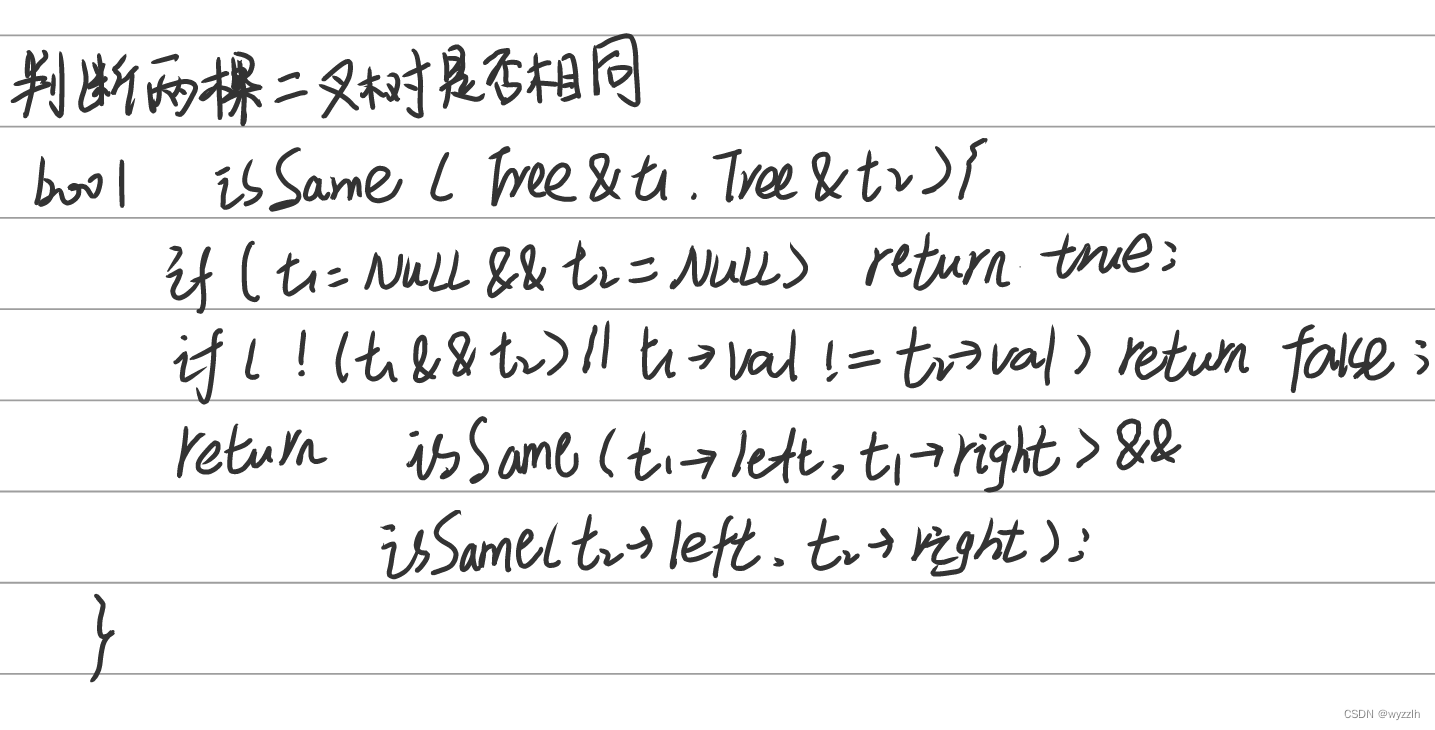 判断两棵二叉树是否相同
bool isSame ( Tree &t1 . Tree &t2 ){
if ( t1 = NULL && t2 = NULL ) return true;
if ( ! (t1 && t2) || t1→val != t2→val ) return false ;
return isSame ( t1→left, t1→right ) &&
isSame( t2→left. t2→right );
}
CSDN @wyzzlh